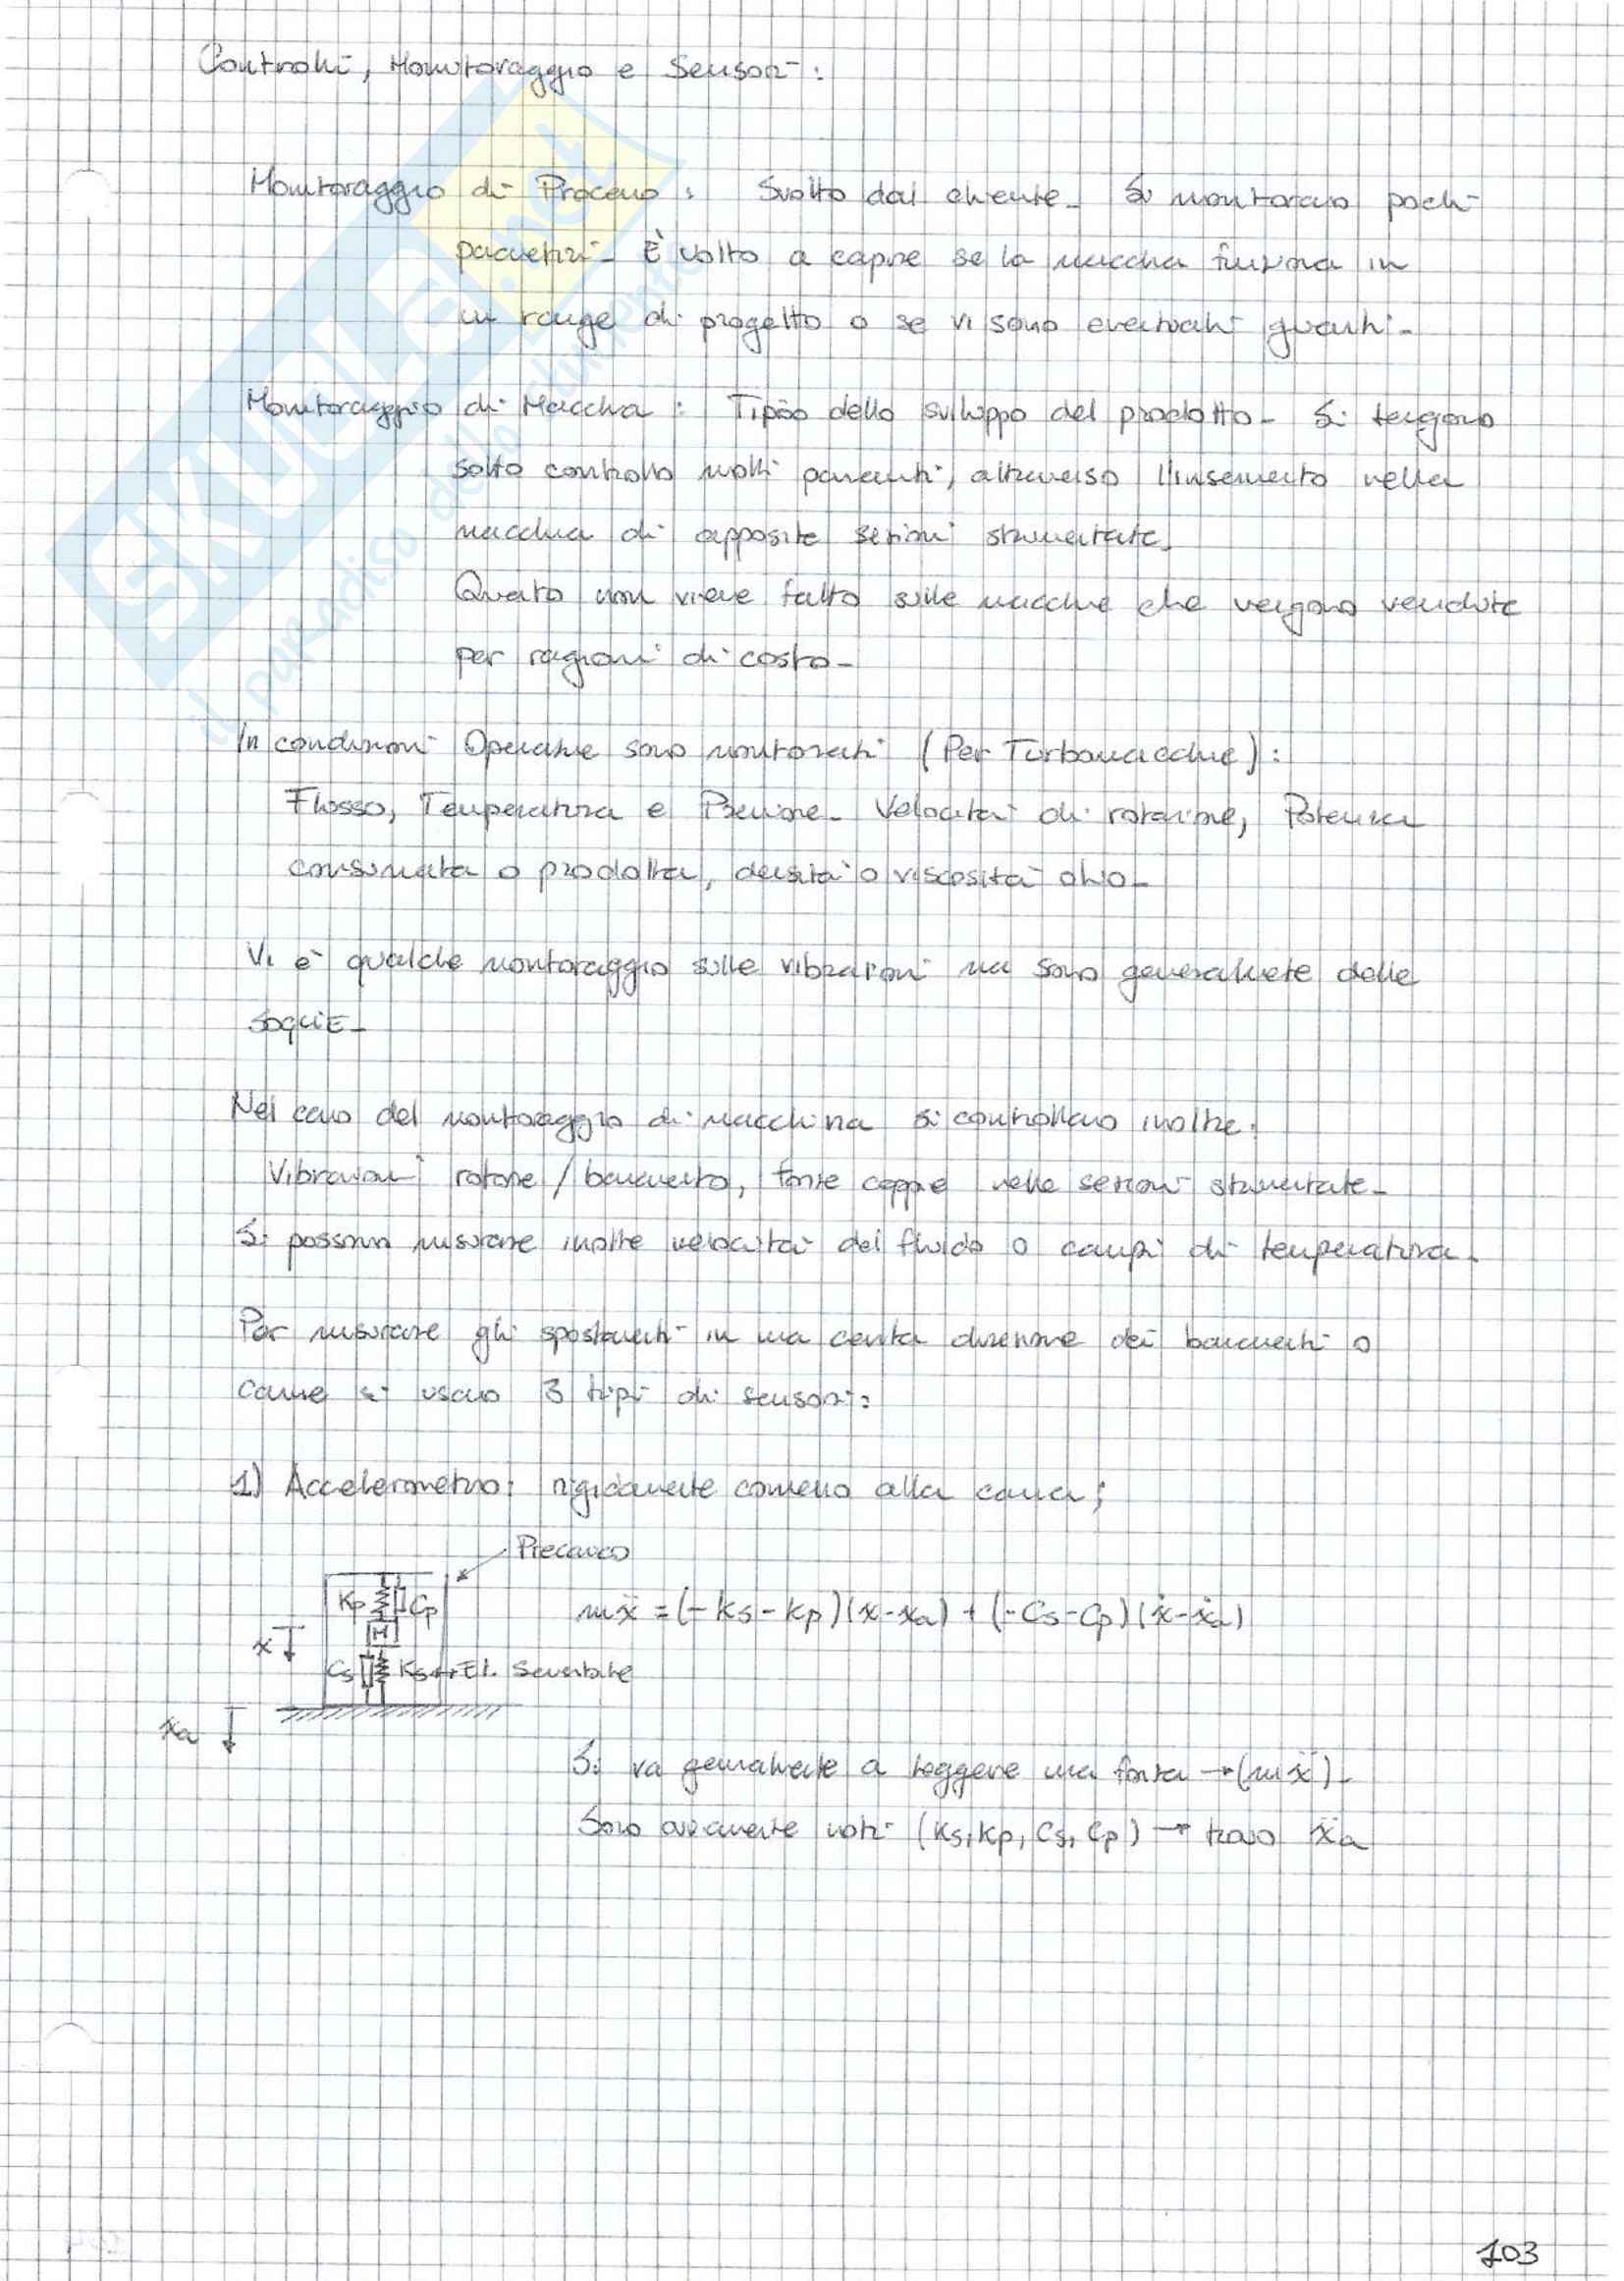 Controlli, Monitoraggio e Sensori:
Monitoraggio di Processo: Svolto dal cliente. Si monitorano pochi
parametri. È volto a capire se la macchina funziona in
un range di progetto o se vi sono eventuali guasti.
Monitoraggio di Macchina: Tipico dello sviluppo del prodotto. Si tengono
sotto controllo molti parametri, attraverso l'inserimento nella
macchina di apposite sezioni strumentate.
Questo non viene fatto sulle macchine che vengono vendute
per ragioni di costo.
In condizioni Operative sono monitorati (Per Turbomacchine):
Flusso, Temperatura e Pressione. Velocità di rotazione, Potenza
consumata o prodotta, densità o viscosità olio.
Vi è qualche monitoraggio sulle vibrazioni ma sono generalmente delle
soglie.
Nel caso del monitoraggio di macchina si controllano inoltre:
Vibrazioni rotore / basamento, forze coppie nelle sezioni strumentate.
Si possono misurare inoltre velocità del fluido o campi di temperatura.
Per misurare gli spostamenti in una certa direzione dei basamenti o
casse si usano 3 tipi di sensori:
1) Accelerometro: rigidamente connesso alla cassa;
Precarico
Kp Cp
mẍ = (-ks-kp)(x-xa) + (-Cs-Cp)(ẋ-ẋa)
M
x
Cs Ks El. Sensibile
xa
Si va generalmente a leggere una forza → (mẍ).
Sono ovviamente noti (Ks, Kp, Cs, Cp) → trovo ẍa
103
SKUOLA.net
il paradiso dello studente